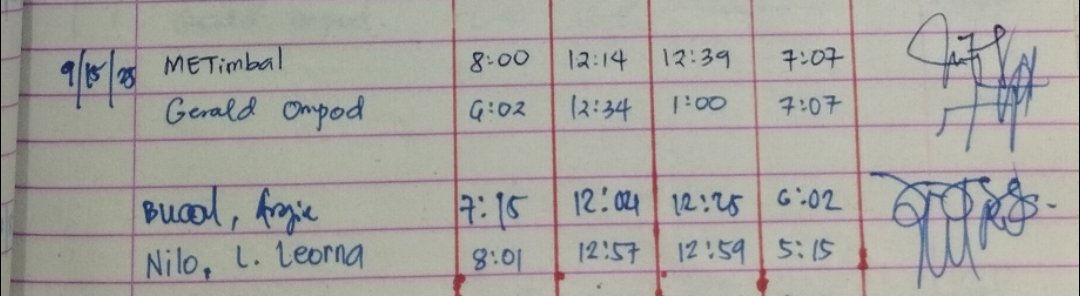 9/15/25 METimbal 8:00 12:14 12:39 7:07
Gerald Ompod 6:02 12:34 1:00 7:07
Bucol, Angie 7:15 12:04 12:25 6:02
Nilo, L. Leorna 8:01 12:57 12:59 5:15